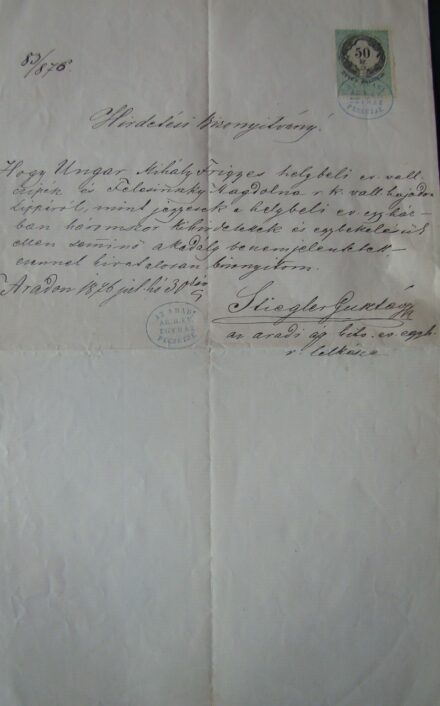 83/876.
50
Hirdetési Bizonyitvány.
Hogy Ungar Mihály Frigyes helybeli ev. vall.
és Felsinszky Magdolna r. k. vall hajadon
Lippáról, mint jegyesek a helybeli ev. egyház-
ban háromszor kihirdettettek és egybekelésük
ellen semminő akadály be nem jelentetett,
ezennel hivatalosan bizonyitom.
Aradon 1876 jul. hó
Stiegler Gusztáv
az aradi ág. hitv. ev. egyh.
r. lelkésze
AZ ARADI
ÁG. H. EV.
EGYHÁZ
PECSÉTJE